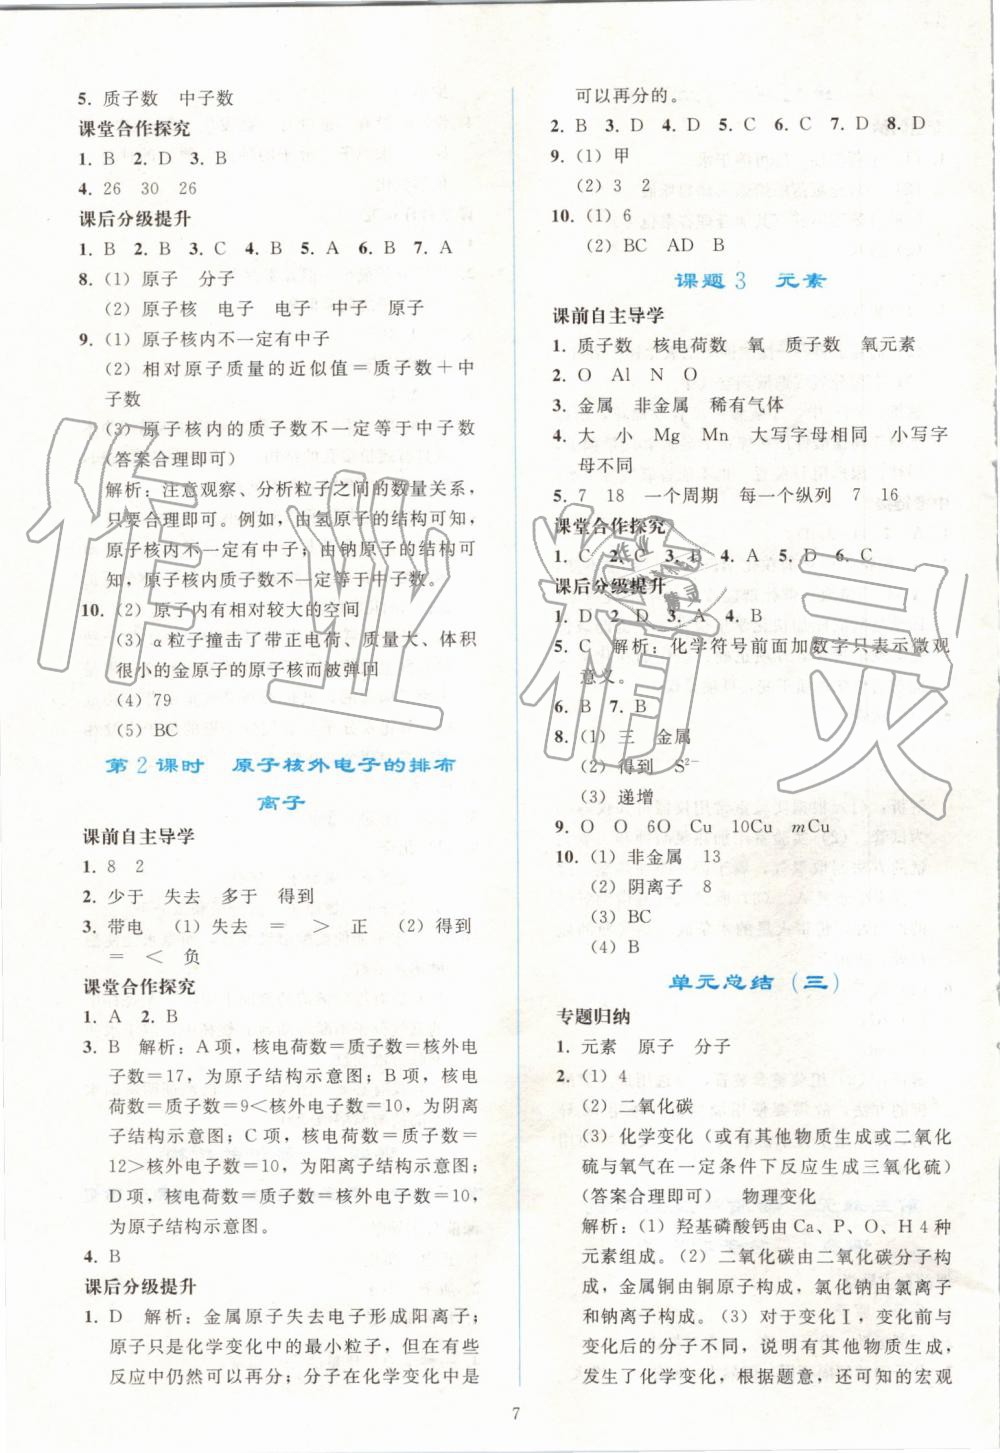 5. 质子数　中子数
课堂合作探究
1. B　2. D　3. B
4. 26　30　26
课后分级提升
1. B　2. B　3. C　4. B　5. A　6. B　7. A
8. (1) 原子　分子
(2) 原子核　电子　电子　中子　原子
9. (1) 原子核内不一定有中子
(2) 相对原子质量的近似值＝质子数＋中
子数
(3) 原子核内的质子数不一定等于中子数
(答案合理即可)
解析：注意观察、分析粒子之间的数量关系，
只要合理即可。例如，由氢原子的结构可知，
原子核内不一定有中子；由钠原子的结构可
知，原子核内质子数不一定等于中子数。
10. (2) 原子内有相对较大的空间
(3) α粒子撞击了带正电荷、质量大、体积
很小的金原子的原子核而被弹回
(4) 79
(5) BC
第2课时　原子核外电子的排布
离子
课前自主导学
1. 8　2
2. 少于　失去　多于　得到
3. 带电　(1) 失去　＝　＞　正　(2) 得到
＝　＜　负
课堂合作探究
1. A　2. B
3. B　解析：A项，核电荷数＝质子数＝核外电
子数＝17，为原子结构示意图；B项，核电
荷数＝质子数＝9＜核外电子数＝10，为阴离
子结构示意图；C项，核电荷数＝质子数＝
12＞核外电子数＝10，为阳离子结构示意图；
D项，核电荷数＝质子数＝核外电子数＝10，
为原子结构示意图。
4. B
课后分级提升
1. D　解析：金属原子失去电子形成阳离子；
原子只是化学变化中的最小粒子，但在有些
反应中仍然可以再分；分子在化学变化中是
可以再分的。
2. B　3. D　4. D　5. C　6. C　7. D　8. D
9. (1) 甲
(2) 3　2
10. (1) 6
(2) BC　AD　B
课题3　元素
课前自主导学
1. 质子数　核电荷数　氧　质子数　氧元素
2. O　Al　N　O
3. 金属　非金属　稀有气体
4. 大　小　Mg　Mn　大写字母相同　小写字
母不同
5. 7　18　一个周期　每一个纵列　7　16
课堂合作探究
1. C　2. C　3. B　4. A　5. D　6. C
课后分级提升
1. D　2. D　3. A　4. B
5. C　解析：化学符号前面加数字只表示微观
意义。
6. B　7. B
8. (1) 三　金属
(2) 得到　S²⁻
(3) 递增
9. O　O　6O　Cu　10Cu　mCu
10. (1) 非金属　13
(2) 阴离子　8
(3) BC
(4) B
单元总结（三）
专题归纳
1. 元素　原子　分子
2. (1) 4
(2) 二氧化碳
(3) 化学变化（或有其他物质生成或二氧化
硫与氧气在一定条件下反应生成三氧化硫）
(答案合理即可)　物理变化
解析：(1) 羟基磷酸钙由Ca、P、O、H 4种
元素组成。(2) 二氧化碳由二氧化碳分子构
成，金属铜由铜原子构成，氯化钠由氯离子
和钠离子构成。(3) 对于变化Ⅰ，变化前与
变化后的分子不同，说明有其他物质生成，
发生了化学变化，根据题意，还可知的宏观
7
作业精灵
作业
精灵